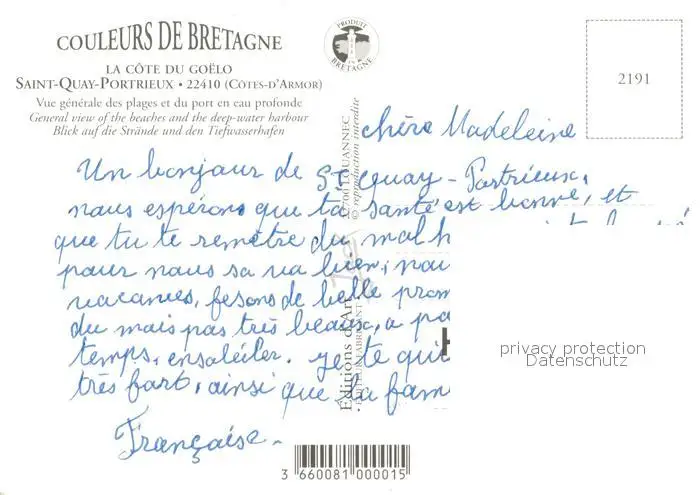 COULEURS DE BRETAGNE
PRODUIT EN BRETAGNE
LA CÔTE DU GOËLO
SAINT-QUAY-PORTRIEUX • 22410 (CÔTES-D'ARMOR)
Vue générale des plages et du port en eau profonde
General view of the beaches and the deep-water harbour
Blick auf die Strände und den Tiefwasserhafen
2191
chère Madeleine
Un bonjour de St Quay-Portrieux,
nous espérons que ta santé est bonne, et
que tu te remetre du malh
pour nous sa va bien, nou
vacances, fesons de belle prom
du mais pas très beaux, a pa
temps, ensoleiler. je te qui
très fort, ainsi que ta fam
Française.
LOUANNEC
© reproduction interdite
Éditions d'Art
ÉDITEUR FABRICANT
privacy protection
Datenschutz
3 660081 000015